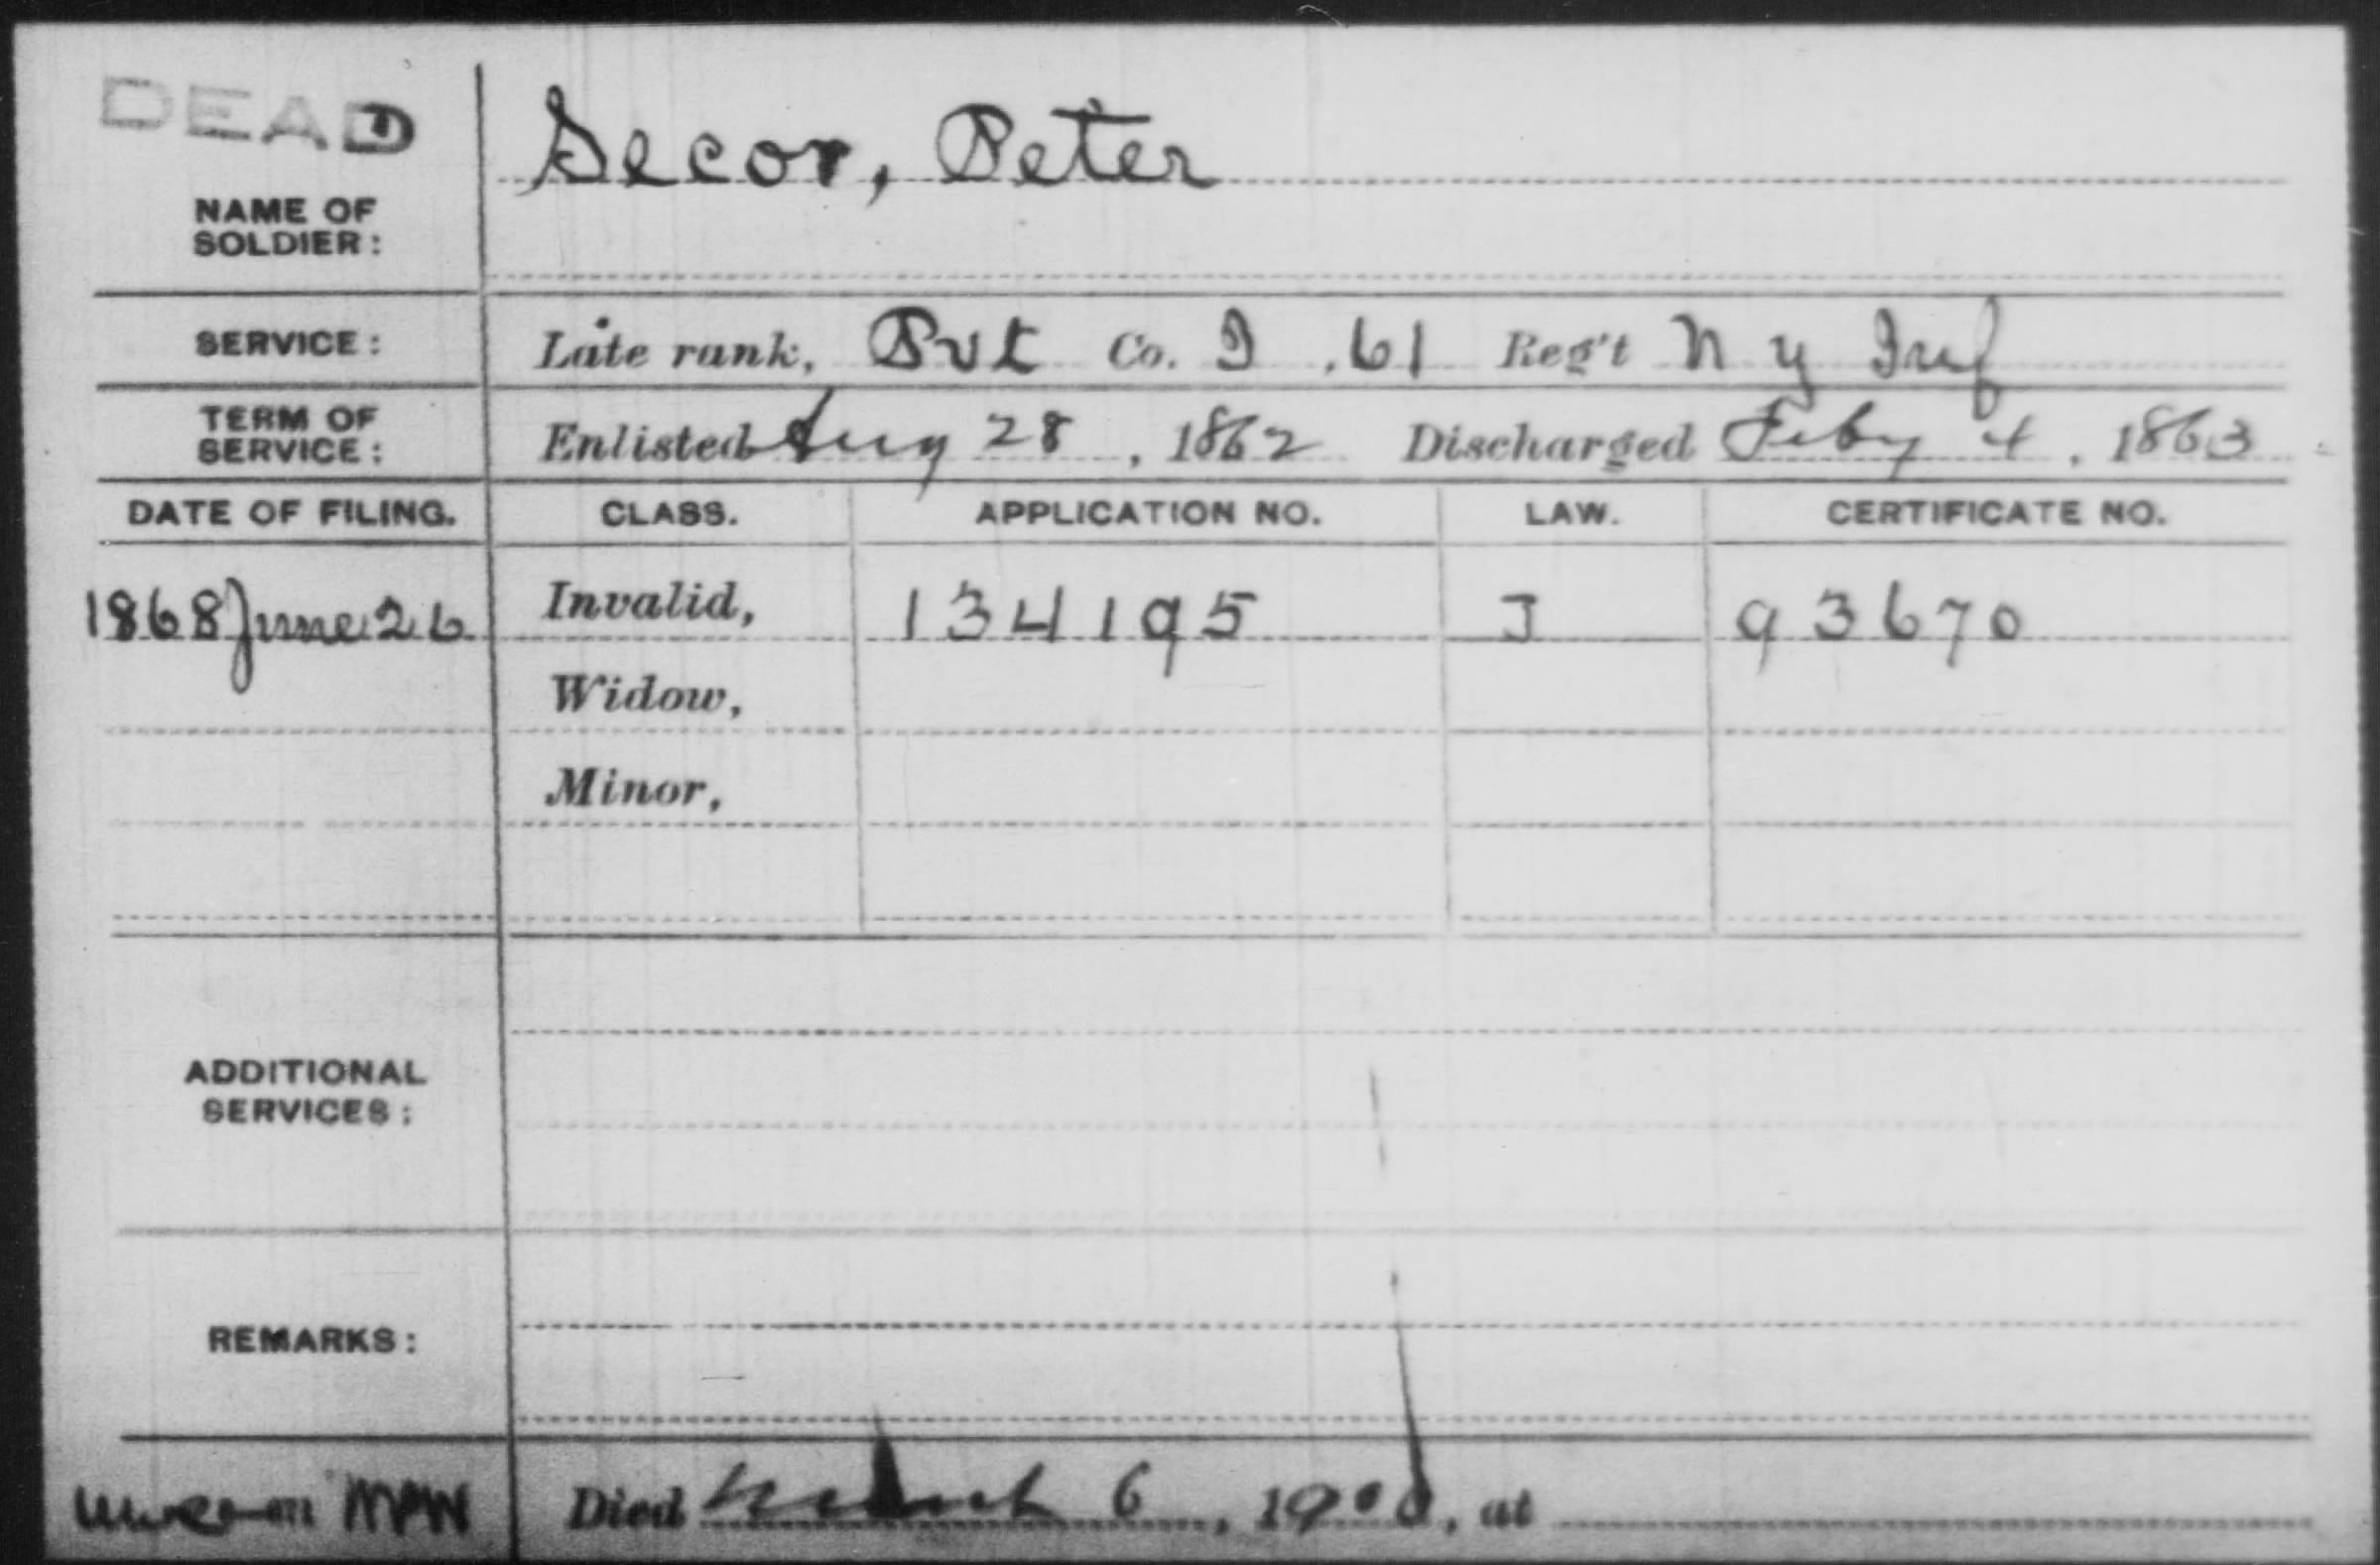 DEAD
NAME OF
SOLDIER:
Secor, Peter
SERVICE:
Late rank, Pvt Co. I, 61 Reg't N Y Inf
TERM OF
SERVICE:
Enlisted Aug 28, 1862 Discharged Feby 4, 1863
DATE OF FILING. CLASS. APPLICATION NO. LAW. CERTIFICATE NO.
1868 June 26 Invalid, 134195 J 93670
Widow,
Minor,
ADDITIONAL
SERVICES:
REMARKS:
Died March 6, 190 , at